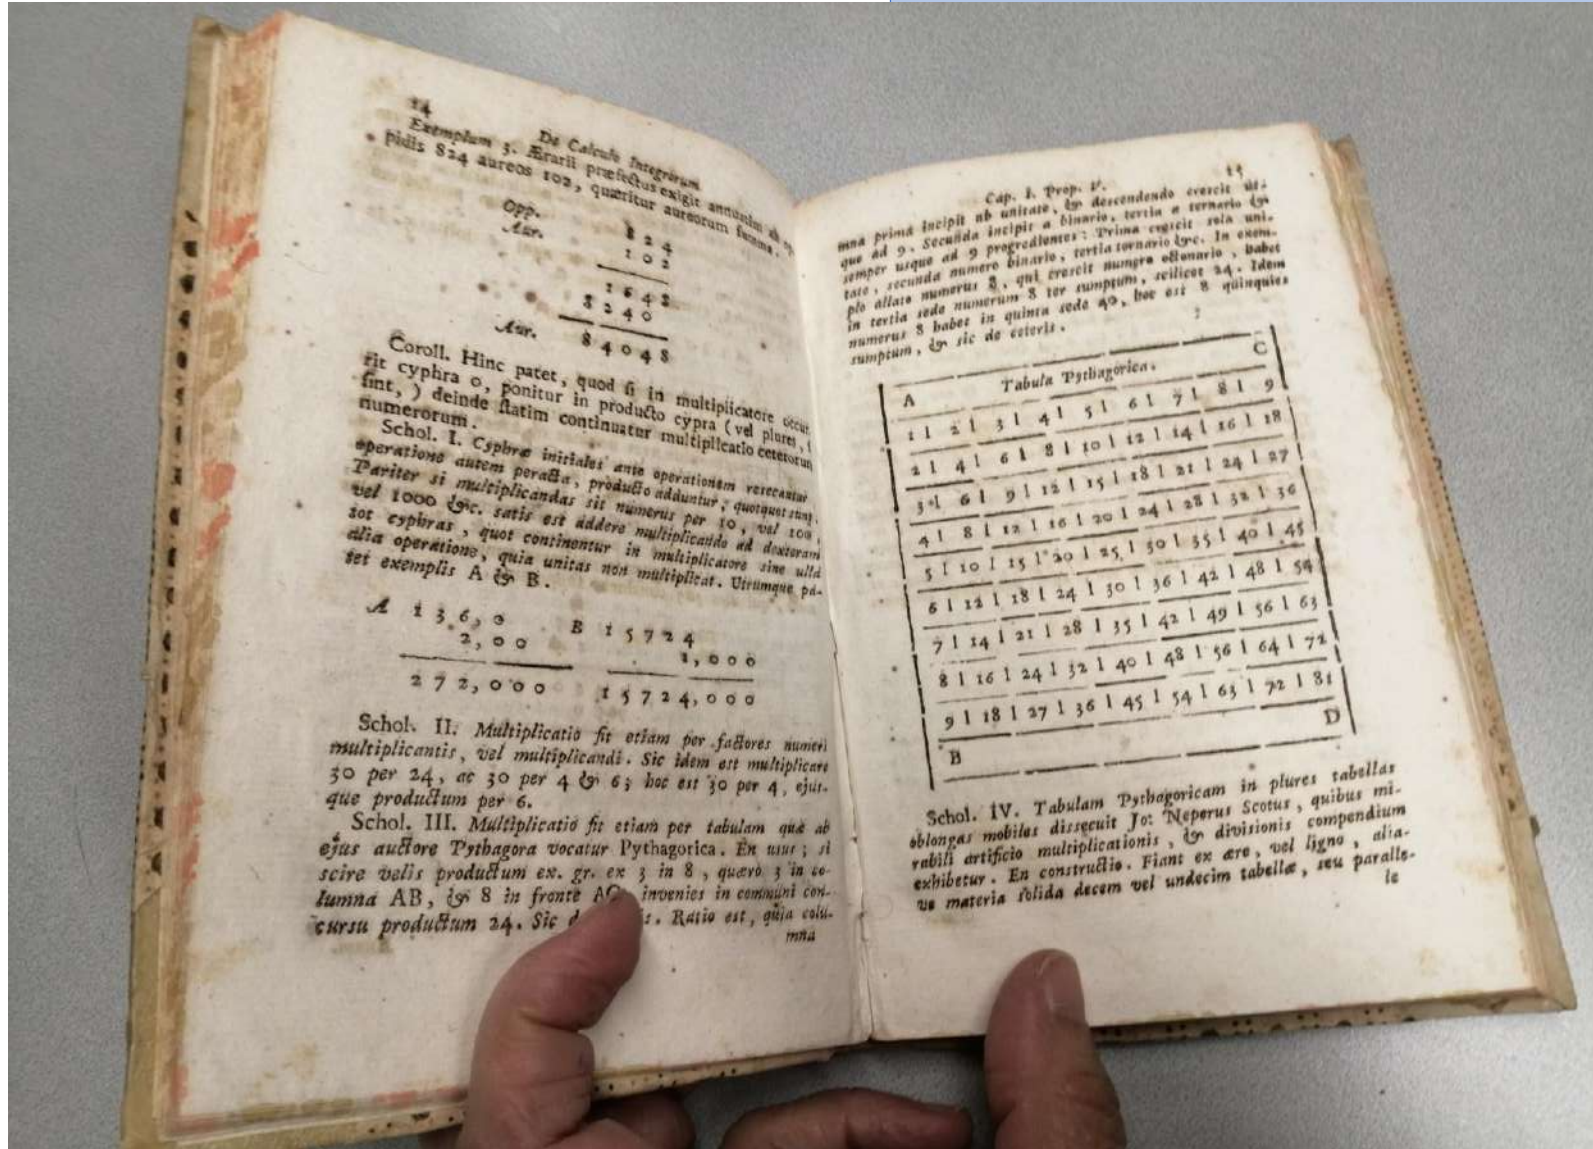 14
De Calculo Integrorum
Exemplum 3. Ærarii præfectus exigit annuatim ab op-
pidis 824 aureos 102, quæritur aureorum summa.
Opp. 8 2 4
Aur. 1 0 2
1 6 4 8
8 2 4 0
Aur. 8 4 0 4 8
Coroll. Hinc patet, quod si in multiplicatore occur-
rit cyphra 0, ponitur in producto cypra (vel plures, si
sint,) deinde statim continuatur multiplicatio ceterorum
numerorum.
Schol. I. Cyphræ initiales ante operationem resecantur
operatione autem peracta, producto adduntur, quotquot sunt.
Pariter si multiplicandas sit numerus per 10, vel 100,
vel 1000 &c. satis est addere multiplicando ad dexteram
tot cyphras, quot continentur in multiplicatore sine ulla
alia operatione, quia unitas non multiplicat. Utrumque pa-
tet exemplis A & B.
A 1 3 6, 0 B 1 5 7 2 4
2, 0 0 1, 0 0 0
2 7 2, 0 0 0 1 5 7 2 4, 0 0 0
Schol. II. Multiplicatio fit etiam per factores numeri
multiplicantis, vel multiplicandi. Sic idem est multiplicare
30 per 24, ac 30 per 4 & 6; hoc est 30 per 4, ejus-
que productum per 6.
Schol. III. Multiplicatio fit etiam per tabulam quæ ab
ejus auctore Pythagora vocatur Pythagorica. En usus; si
scire velis productum ex. gr. ex 3 in 8, quæro 3 in co-
lumna AB, & 8 in fronte AC, invenies in communi con-
cursu productum 24. Sic de Ratio est, quia colu-
mna
15
Cap. I. Prop. V.
mna prima incipit ab unitate, & descendendo crescit us-
que ad 9. Secunda incipit a binario, tertia a ternario &
semper usque ad 9 progredientes: Prima crescit sola uni-
tate, secunda numero binario, tertia ternario &c. In exem-
plo allato numerus 8, qui crescit numero octonario, habet
in tertia sede numerum 8 ter sumptum, scilicet 24. Idem
numerus 8 habet in quinta sede 40, hoc est 8 quinquies
sumptum, & sic de ceteris.
A Tabula Pythagorica. C
1 | 2 | 3 | 4 | 5 | 6 | 7 | 8 | 9
2 | 4 | 6 | 8 | 10 | 12 | 14 | 16 | 18
3 | 6 | 9 | 12 | 15 | 18 | 21 | 24 | 27
4 | 8 | 12 | 16 | 20 | 24 | 28 | 32 | 36
5 | 10 | 15 | 20 | 25 | 30 | 35 | 40 | 45
6 | 12 | 18 | 24 | 30 | 36 | 42 | 48 | 54
7 | 14 | 21 | 28 | 35 | 42 | 49 | 56 | 63
8 | 16 | 24 | 32 | 40 | 48 | 56 | 64 | 72
9 | 18 | 27 | 36 | 45 | 54 | 63 | 72 | 81
B D
Schol. IV. Tabulam Pythagoricam in plures tabellas
oblongas mobiles dissecuit Jo: Neperus Scotus, quibus mi-
rabili artificio multiplicationis, & divisionis compendium
exhibetur. En constructio. Fiant ex ære, vel ligno, alia-
ve materia solida decem vel undecim tabellæ, seu paralle-
le